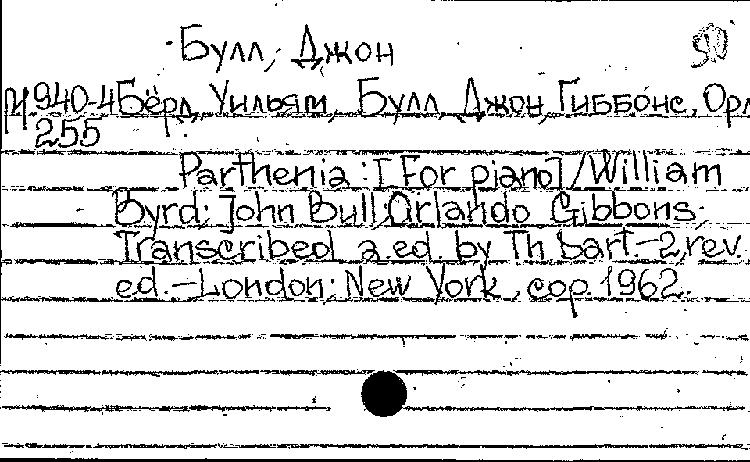 Булл, Джон
М 940-4 Бёрд, Уильям, Булл Джон, Гиббонс, Орл
255
Parthenia : [For piano] / William
Byrd; John Bull; Orlando Gibbons;
Transcribed a.ed. by Th Dart.-2,rev.
ed.-London; New York, cop. 1962.